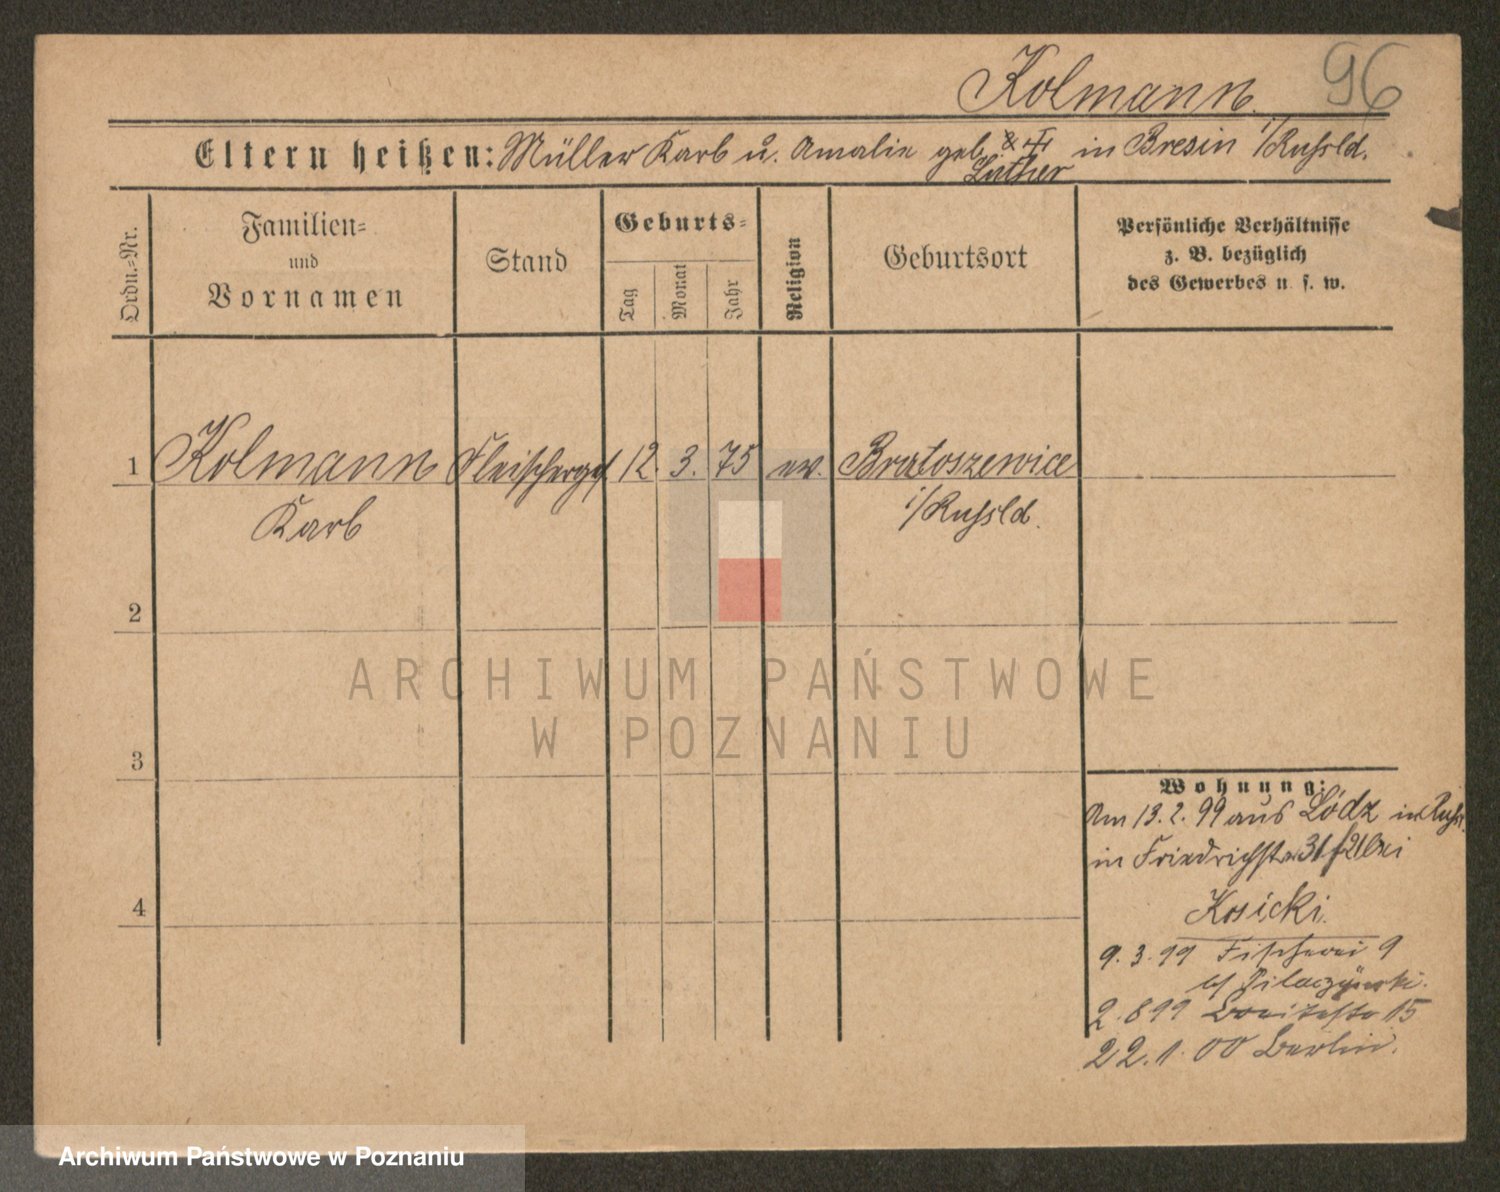 Kolmann
96
Eltern heißen: Müller Karl u. Amalie geb. Luther in Bresin i/Russld.
Ordn.-Nr.
Familien-
und
Vornamen
Stand
Geburts-
Tag
Monat
Jahr
Religion
Geburtsort
Persönliche Verhältnisse
z. B. bezüglich
des Gewerbes u. s. w.
1 Kolmann Fleischerges. 12. 3. 75 ev. Bratoszewice
Karl i/Russld.
2
ARCHIWUM PAŃSTWOWE
W POZNANIU
3
Wohnung:
Am 13. 2. 99 aus Lódz in Russl.
in Friedrichstr 31 bei
Kosicki.
9. 3. 99 Fischerei 9
4
b/ Pilaczyński.
2. 8 99 Breitestr 15
22. 1. 00 Berlin.
Archiwum Państwowe w Poznaniu